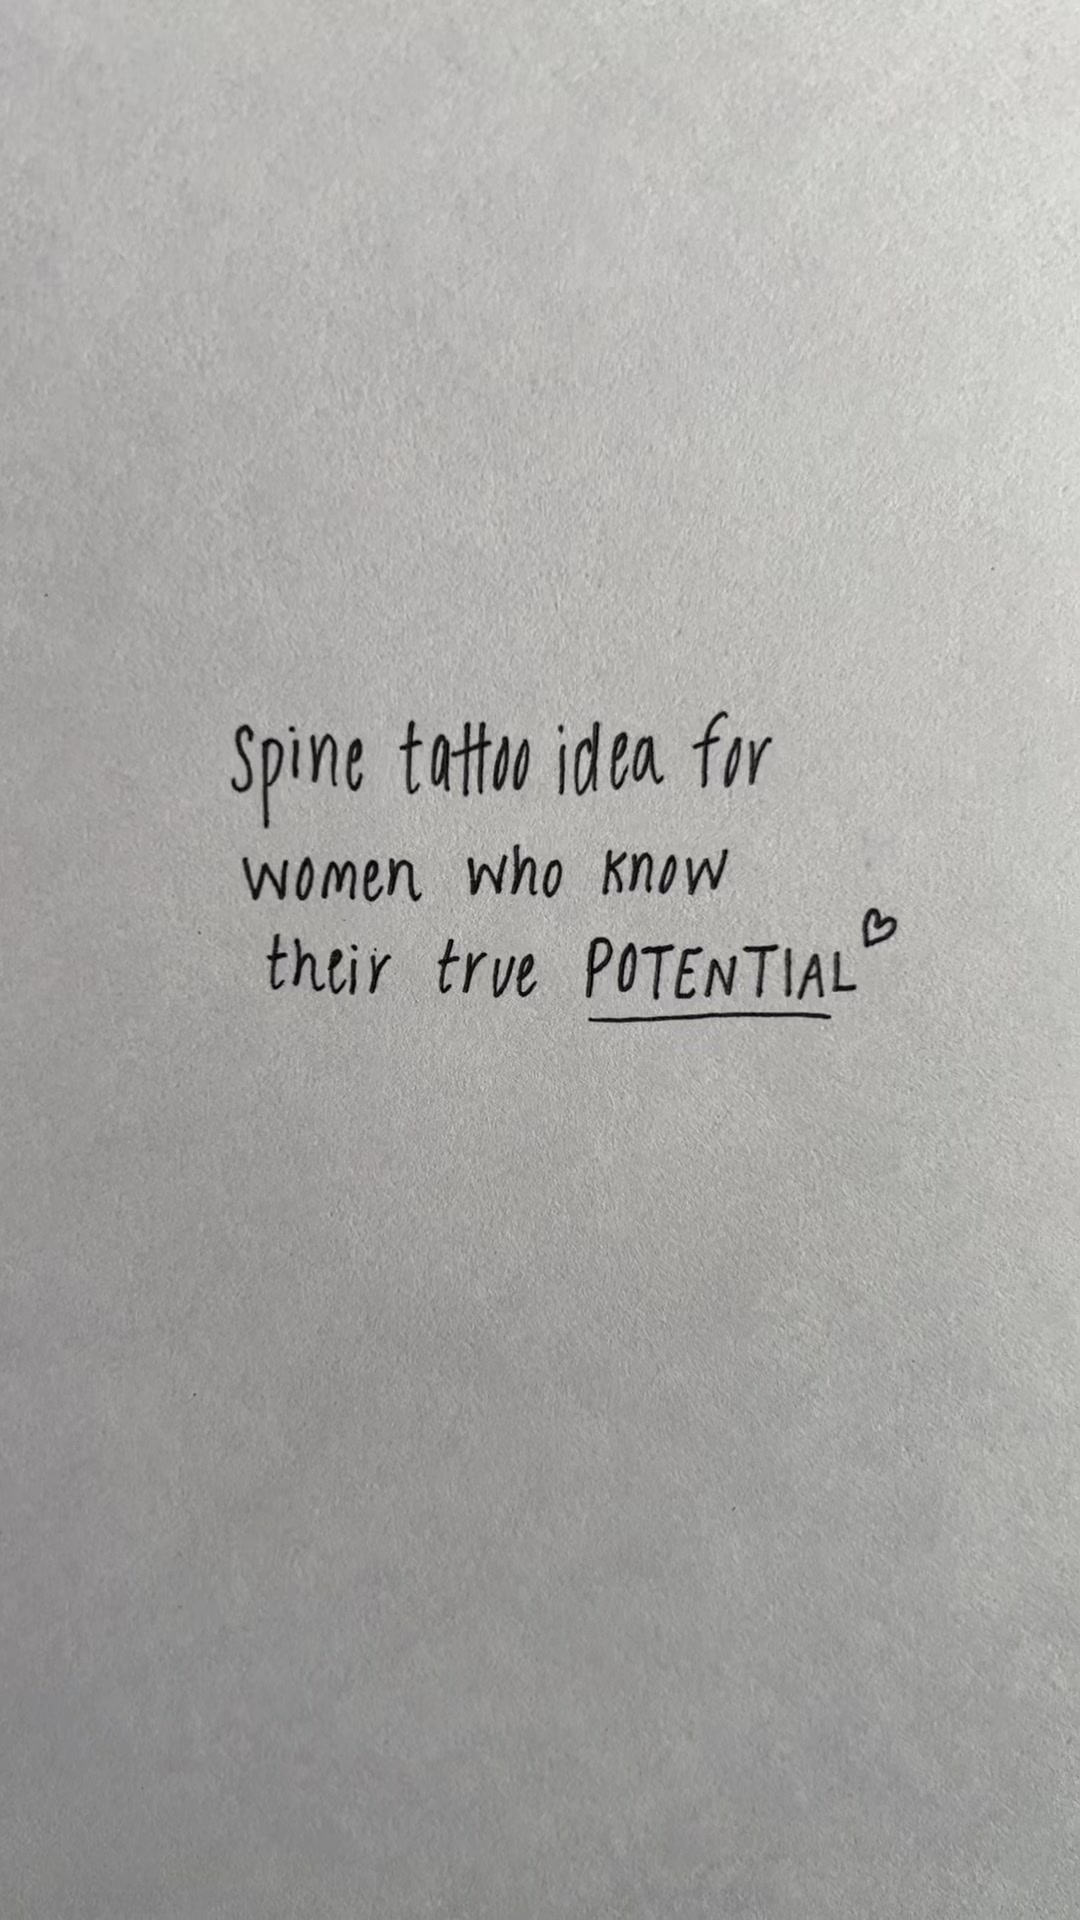 Spine tattoo idea for
women who know
their true POTENTIAL♡